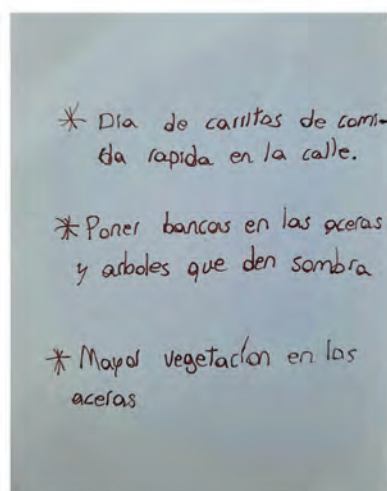 * Dia de carritos de comi-
da rapida en la calle.
* Poner bancas en las aceras
y arboles que den sombra
* Mayor vegetación en las
aceras